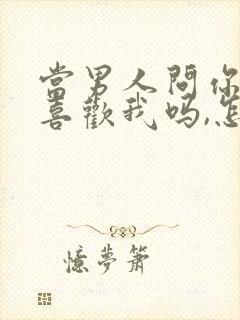 當男人問你
喜歡我吗,怎
憶夢簫